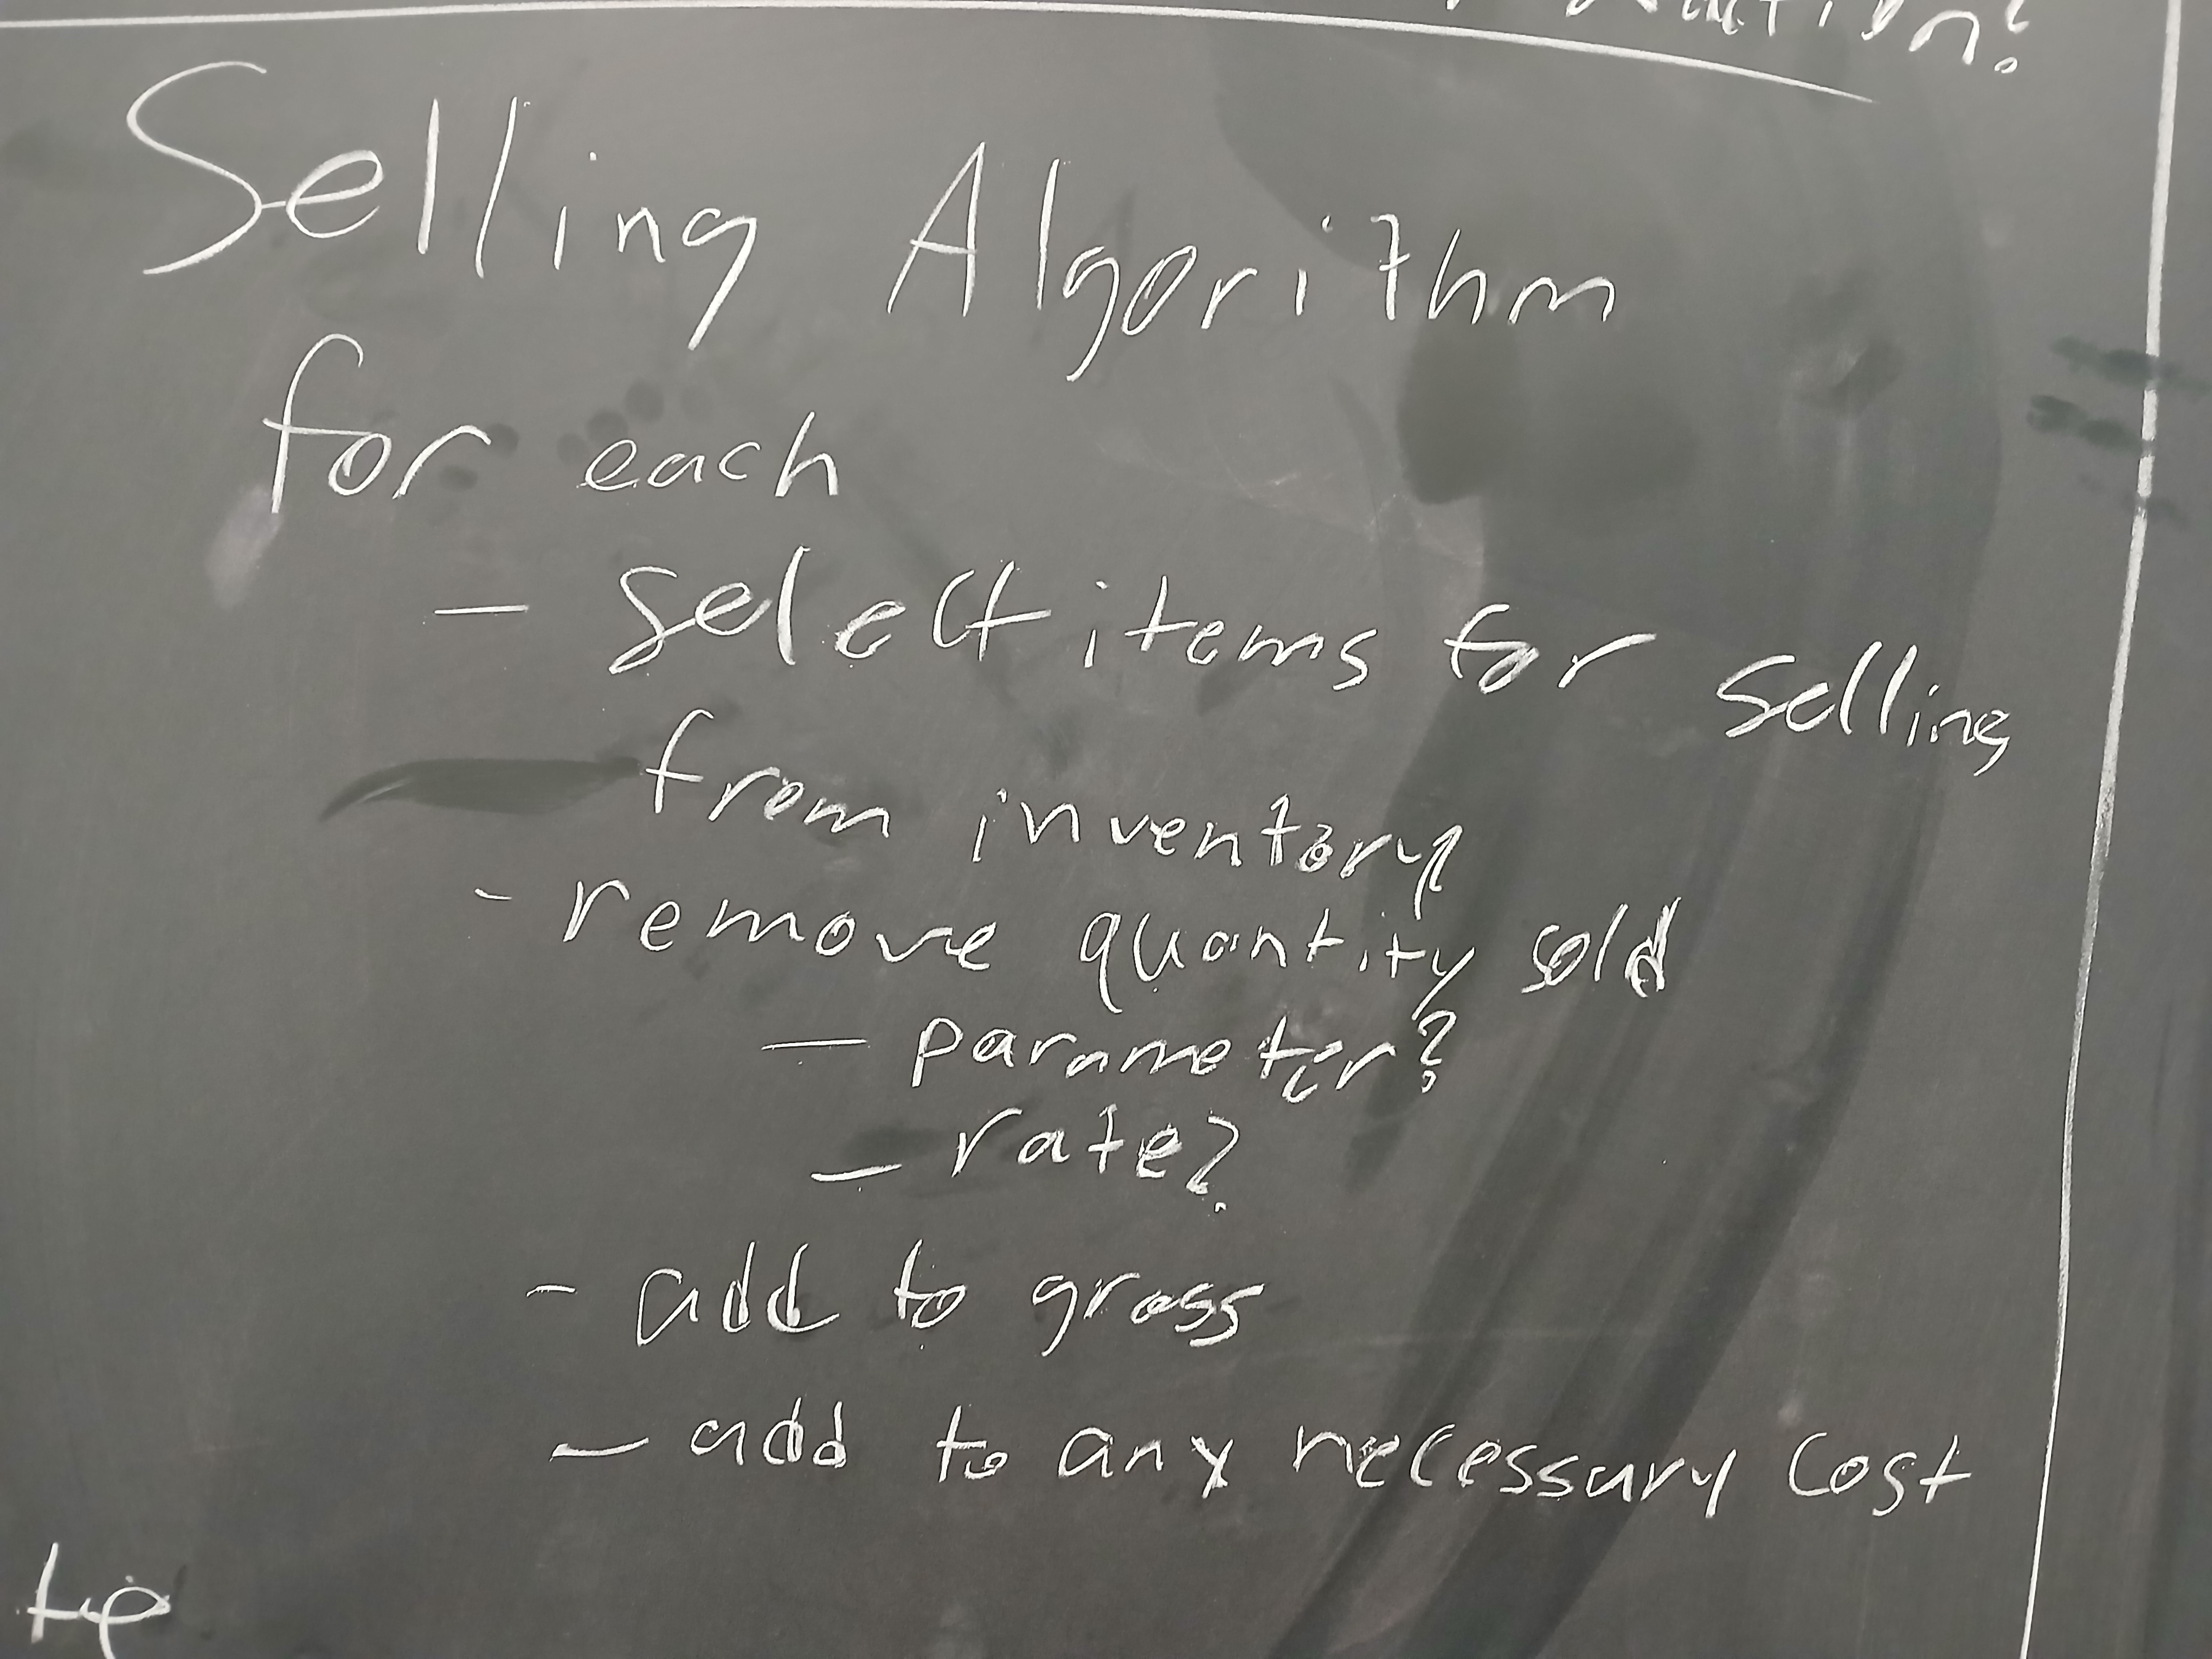 Selling Algorithm
for each
- select items for selling
from inventory
- remove quantity sold
- parameter?
- rate?
- add to gross
- add to any necessary cost